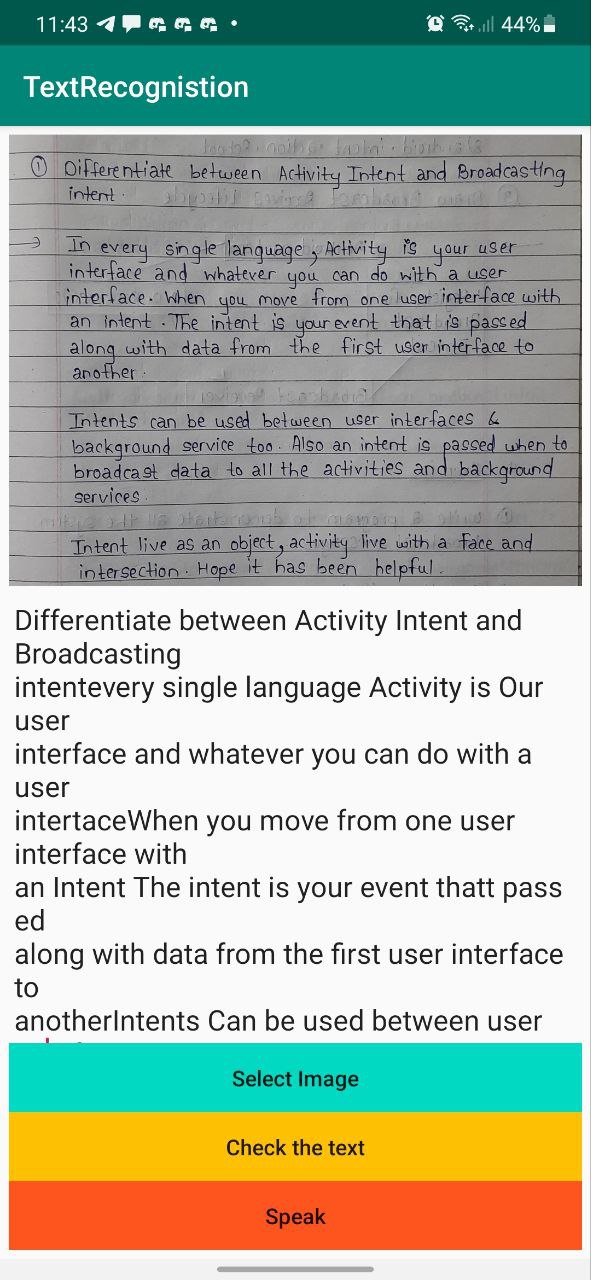 11:43
44%
TextRecognistion
① Differentiate between Activity Intent and Broadcasting
intent.
→ In every single language, Activity is your user
interface and whatever you can do with a user
interface. When you move from one user interface with
an intent. The intent is your event that is passed
along with data from the first user interface to
another.
Intents can be used between user interfaces &
background service too. Also an intent is passed when to
broadcast data to all the activities and background
services.
Intent live as an object, activity live with a face and
intersection. Hope it has been helpful.
Differentiate between Activity Intent and
Broadcasting
intentevery single language Activity is Our
user
interface and whatever you can do with a
user
intertaceWhen you move from one user
interface with
an Intent The intent is your event thatt pass
ed
along with data from the first user interface
to
anotherIntents Can be used between user
Select Image
Check the text
Speak